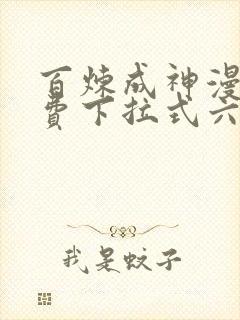 百炼成神漫
费下拉式六
我是蚊子